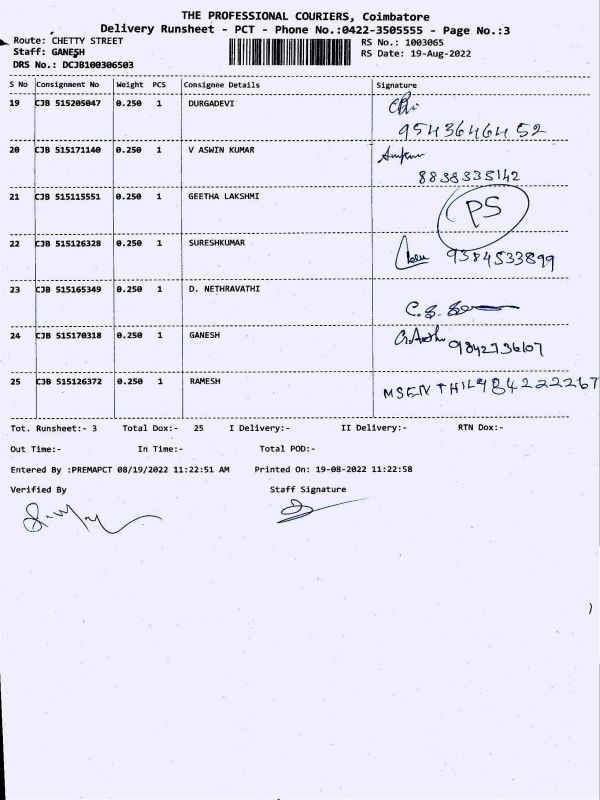 THE PROFESSIONAL COURIERS, Coimbatore
Delivery Runsheet - PCT - Phone No.:0422-3505555 - Page No.:3
Route: CHETTY STREET RS No.: 1003065
Staff: GANESH RS Date: 19-Aug-2022
DRS No.: DCJB100306503
S No Consignment No Weight PCS Consignee Details Signature
19 CJB 515205047 0.250 1 DURGADEVI
9543646452
20 CJB 515171140 0.250 1 V ASWIN KUMAR
8838335142
21 CJB 515115551 0.250 1 GEETHA LAKSHMI PS
22 CJB 515126328 0.250 1 SURESHKUMAR 9384533899
23 CJB 515165349 0.250 1 D. NETHRAVATHI
24 CJB 515170318 0.250 1 GANESH 9842736107
25 CJB 515126372 0.250 1 RAMESH MSENTHIL 984222267
Tot. Runsheet:- 3 Total Dox:- 25 I Delivery:- II Delivery:- RTN Dox:-
Out Time:- In Time:- Total POD:-
Entered By :PREMAPCT 08/19/2022 11:22:51 AM Printed On: 19-08-2022 11:22:58
Verified By Staff Signature